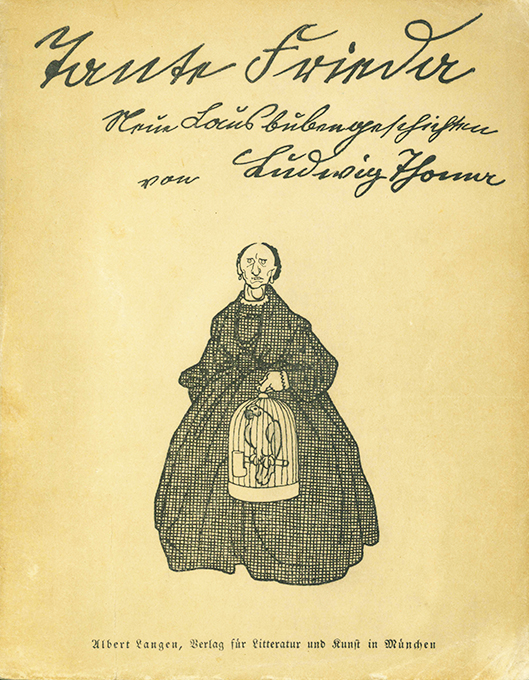 Tante Frieda
Neue Lausbubengeschichten
von Ludwig Thoma
Albert Langen, Verlag für Litteratur und Kunst in München